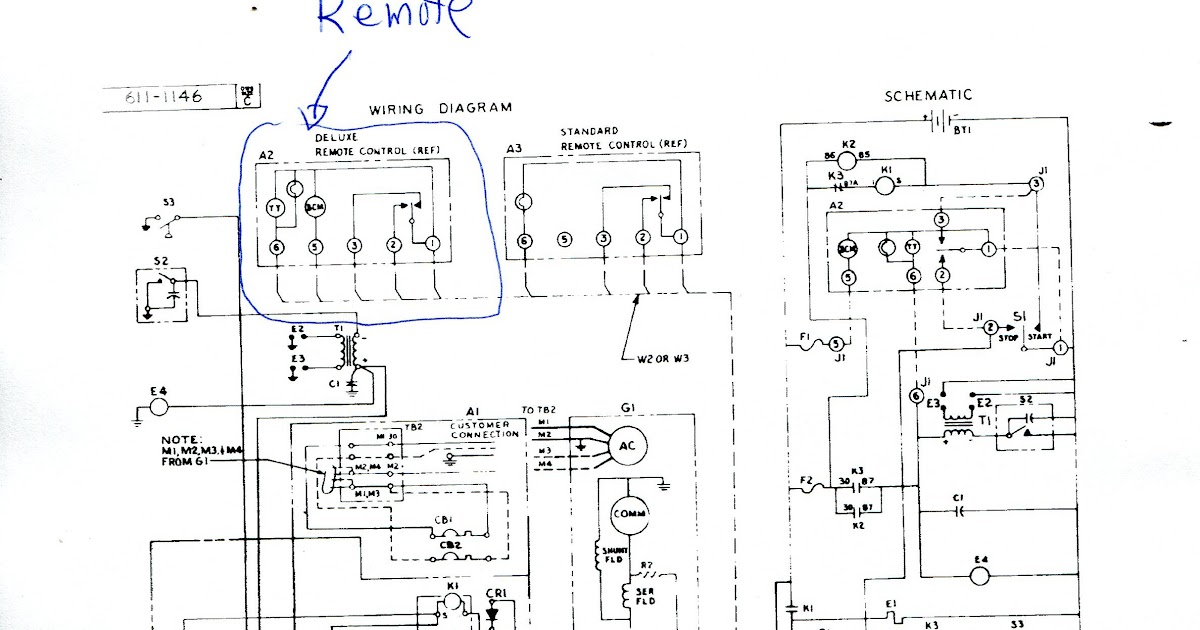 Remote
611-1146
C
WIRING DIAGRAM
SCHEMATIC
BT1
DELUXE
REMOTE CONTROL (REF)
A2
TT
BCM
6 5 3 2 1
STANDARD
REMOTE CONTROL (REF)
A3
6 5 3 2 1
W2 OR W3
S3
S2
E2
T1
E3
C1
E4
NOTE:
M1, M2, M3, & M4
FROM G1
A1
CUSTOMER
CONNECTION
TB2
M1 30
M2, M4 M2
M1, M3
CB1
CB2
K1
S
CR1
TO TB2
M1
M2
M3
M4
G1
AC
COMM
SHUNT
FLD
R2
SER
FLD
K2
86 85
K3
87A
K1
S
J1
3
A2
3
BCM
TT
1
5
6
2
F1
5
J1
J1
2
S1
STOP
START
1
J1
J1
6
E3
E2
S2
T1
F2
K3
30 87
30 87
K2
C1
E4
K1
E1
K3
S3